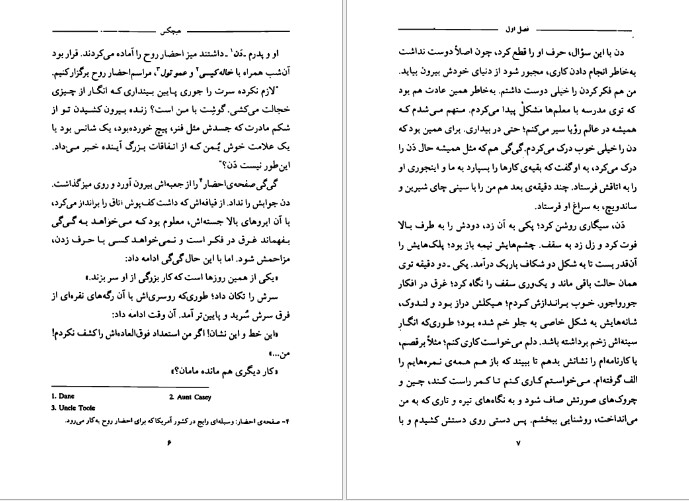 هیچکس
او و پدرم ـ دَن¹ ـ داشتند میز احضار روح را آماده می‌کردند. قرار بود
آن‌شب همراه با خاله‌کیسی² و عمو تول³، مراسم‌احضار روح برگزار کنیم.
"لازم نکرده سرت را جوری پایین بینداری که انگار از چیزی
خجالت می‌کشی. گوشِت با من است؟ زنده بیرون کشیدن تو از
شکم مادرت که جسدش مثل فنر، پیچ خورده‌بود، یک شانس بود یا
یک علامت خوش یُمـن کـه از اتـفاقات بـزرگ آیـنده خـبر مـی‌داد.
این‌طور نیست دَن؟"
گی‌گی صفحه‌ی احضار⁴ را از جعبه‌اش بیرون آورد و روی میزگذاشت.
دن جوابش را نداد. از قیافه‌اش که داشت کف‌پوش اتاق را برانداز می‌کرد،
با آن ابروهای بالا جسته‌اش، معلوم بود کـه مـی‌خواهـد بـه گـی‌گی
بـفهماند غـرق در فکـر است و نـمی‌خواهـد کسـی بـا حـرف زدن،
مزاحمش شود. اما با این حال گی‌گی ادامه داد:
«یکی از همین روزها است که کار بزرگی از او سر بزند.»
سرش را تکان داد؛ طوری‌که روسری‌اش با آن رگه‌های نقره‌ای از
فرق سرش سُرید و پایین‌تر آمد. آن وقت ادامه داد:
«این خط و این نشان! اگر من استعداد فوق‌العاده‌اش را کشف نکردم!
من...»
«کار دیگری هم مانده مامان؟»
1. Dane
2. Aunt Casey
3. Uncle Toole
۴- صفحه‌ی احضار: وسیله‌ای رایج در کشور آمریکا که برای احضار روح به‌کار می‌رود.
۶
فصل اول
دن با این سؤال، حرف او را قطع کرد، چون اصلاً دوست نداشت
به‌خاطر انجام دادن کاری، مجبور شود از دنیای خودش بیرون بیاید.
من هم فکر کردن را خیلی دوست داشتم. به‌خاطر همین عادت هم بود
که توی مدرسه با معلم‌ها مشکل پیدا می‌کردم. متهم می‌شدم کـه
همیشه در عالم رؤیا سیر می‌کنم؛ حتی در بیداری. برای همین بود که
دن را خیلی خوب درک می‌کردم. گی‌گی هم که مثل همیشه حال دَن را
درک می‌کرد، به او گفت که بقیه‌ی کارها را بسپارد به ما و اینجوری او
را به اتاقش فرستاد. چند دقیقه‌ی بعد هم من را با سینی چای شیرین و
ساندویچ، به سراغ او فرستاد.
دَن، سیگاری روشن کرد؛ پکی به آن زد، دودش را به طرف بـالا
فوت کرد و زل زد به سقف. چشم‌هایش نیمه باز بود؛ پلک‌هایش را
آن‌قدر بست تا به شکل دو شکاف باریک درآمد. یکی ـ دو دقیقه توی
همان حالت باقی ماند و یک‌وری سقف را نگاه کرد؛ غرق در افکار
جورواجور. خـوب بـراندازش کـردم؛ هـیکلش دراز بـود و لنـدوک،
شانه‌هایش به شکل خاصی به جلو خم شده بود؛ طوری‌که انگار
سینه‌اش زخم برداشته باشد. دلم می‌خواست کاری کنم؛ مثلاً برقصم،
یا کارنامه‌ام را نشانش بدهم تا ببیند که باز هم همه‌ی نمره‌هایم را
الف گرفته‌ام. می‌خواستم کاری کـنم تـا کـمر راست کـند، چـین و
چروک‌های صورتش صاف شود و به نگاه‌های تیره و تاری که به من
می‌انداخت، روشنایی ببخشم. پس دستی روی دستش کشیدم و با
۷